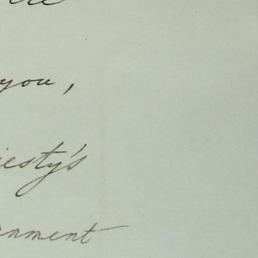 you,
jesty's
rnment